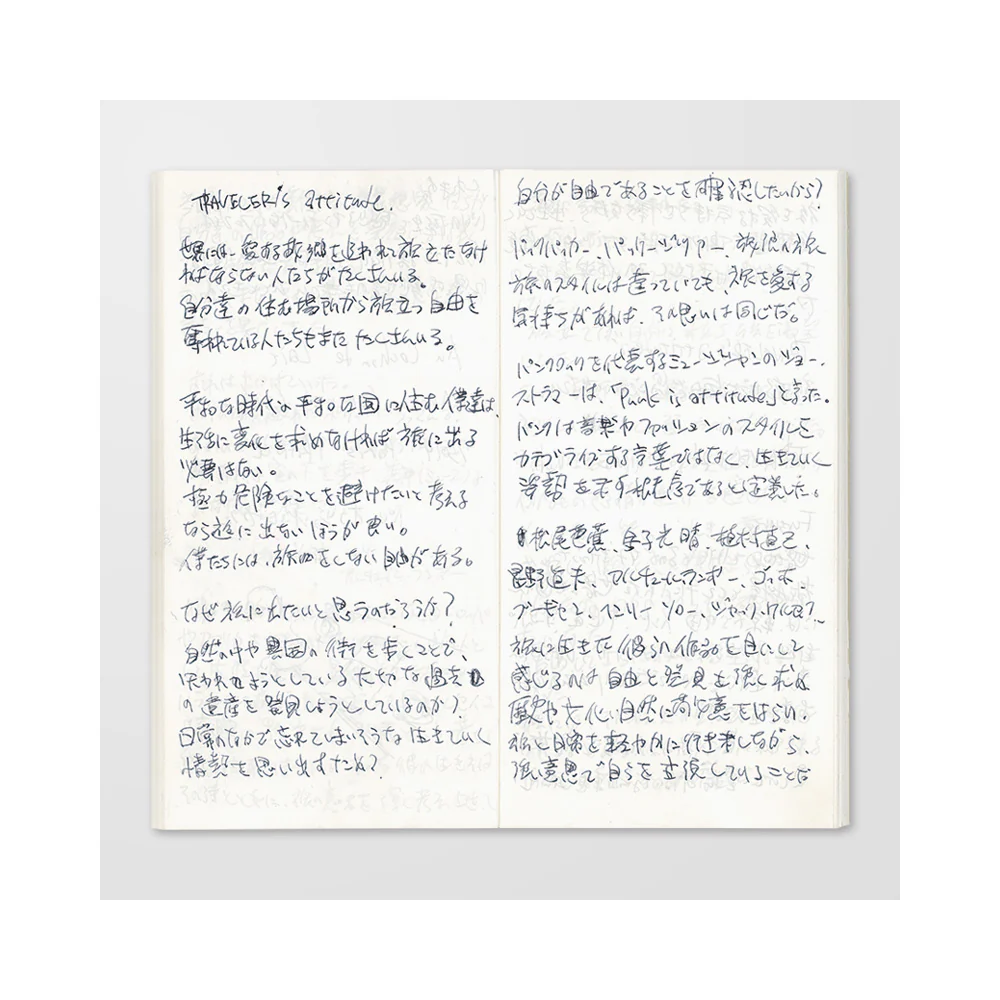 TRAVELER's attitude.
世界には、愛する故郷を追われて旅立たなけ
ればならない人たちがたくさんいる。
自分達の住む場所から旅立つ自由を
奪われている人たちもまたたくさんいる。
平和な時代の平和な国に住む僕達は、
生活に変化を求めなければ旅に出る
必要はない。
極力危険なことを避けたいと考える
なら旅に出ないほうが良い。
僕たちには、旅をしない自由がある。
なぜ旅に出たいと思うのだろうか?
自然の中や異国の街を歩くことで、
失われようとしている大切な過去
の遺産を発見しようとしているのか?
日常のなかで忘れてしまいそうな生きていく
情熱を思い出すため?
自分が自由であることを確認したいから?
バックパッカー、パッケージツアー、放浪の旅
旅のスタイルは違っていても、旅を愛する
気持ちがあれば、その思いは同じだ。
パンクロックを代表するミュージシャンのジョー・
ストラマーは、「Punk is attitude」と言った。
パンクは音楽やファッションのスタイルを
カテゴライズする言葉ではなく、生きていく
姿勢を示す根本であると定義した。
松尾芭蕉、金子光晴、植村直己、
星野道夫、アルチュール・ランボー、ゴッホ、
ブーゼセン、ヘンリー・ソロー、ジャック・ケルアック…
旅に生きた彼らの作品を目にして
感じるのは自由と発見を強く求め
歴史や文化、自然に敬意をはらい、
旅と日常を軽やかに行き来しながら、
強い意思で自らを主張していることだ